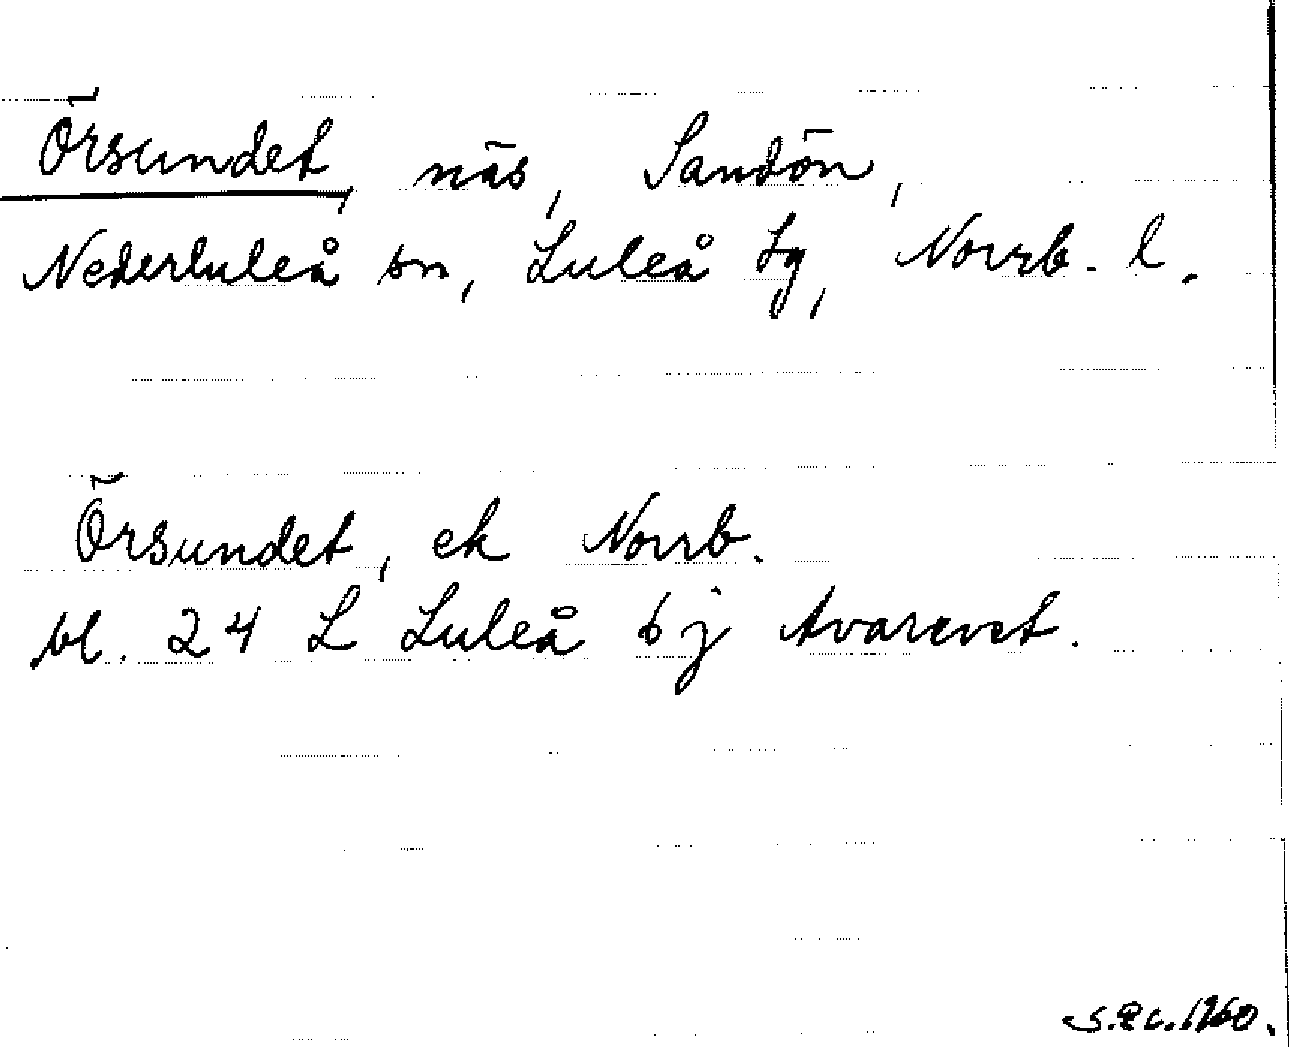 Örsundet, näs, Sandön,
Nederluleå sn, Luleå tg, Norrb. l.
Örsundet, ek Norrb.
bl. 24 L Luleå
1960.